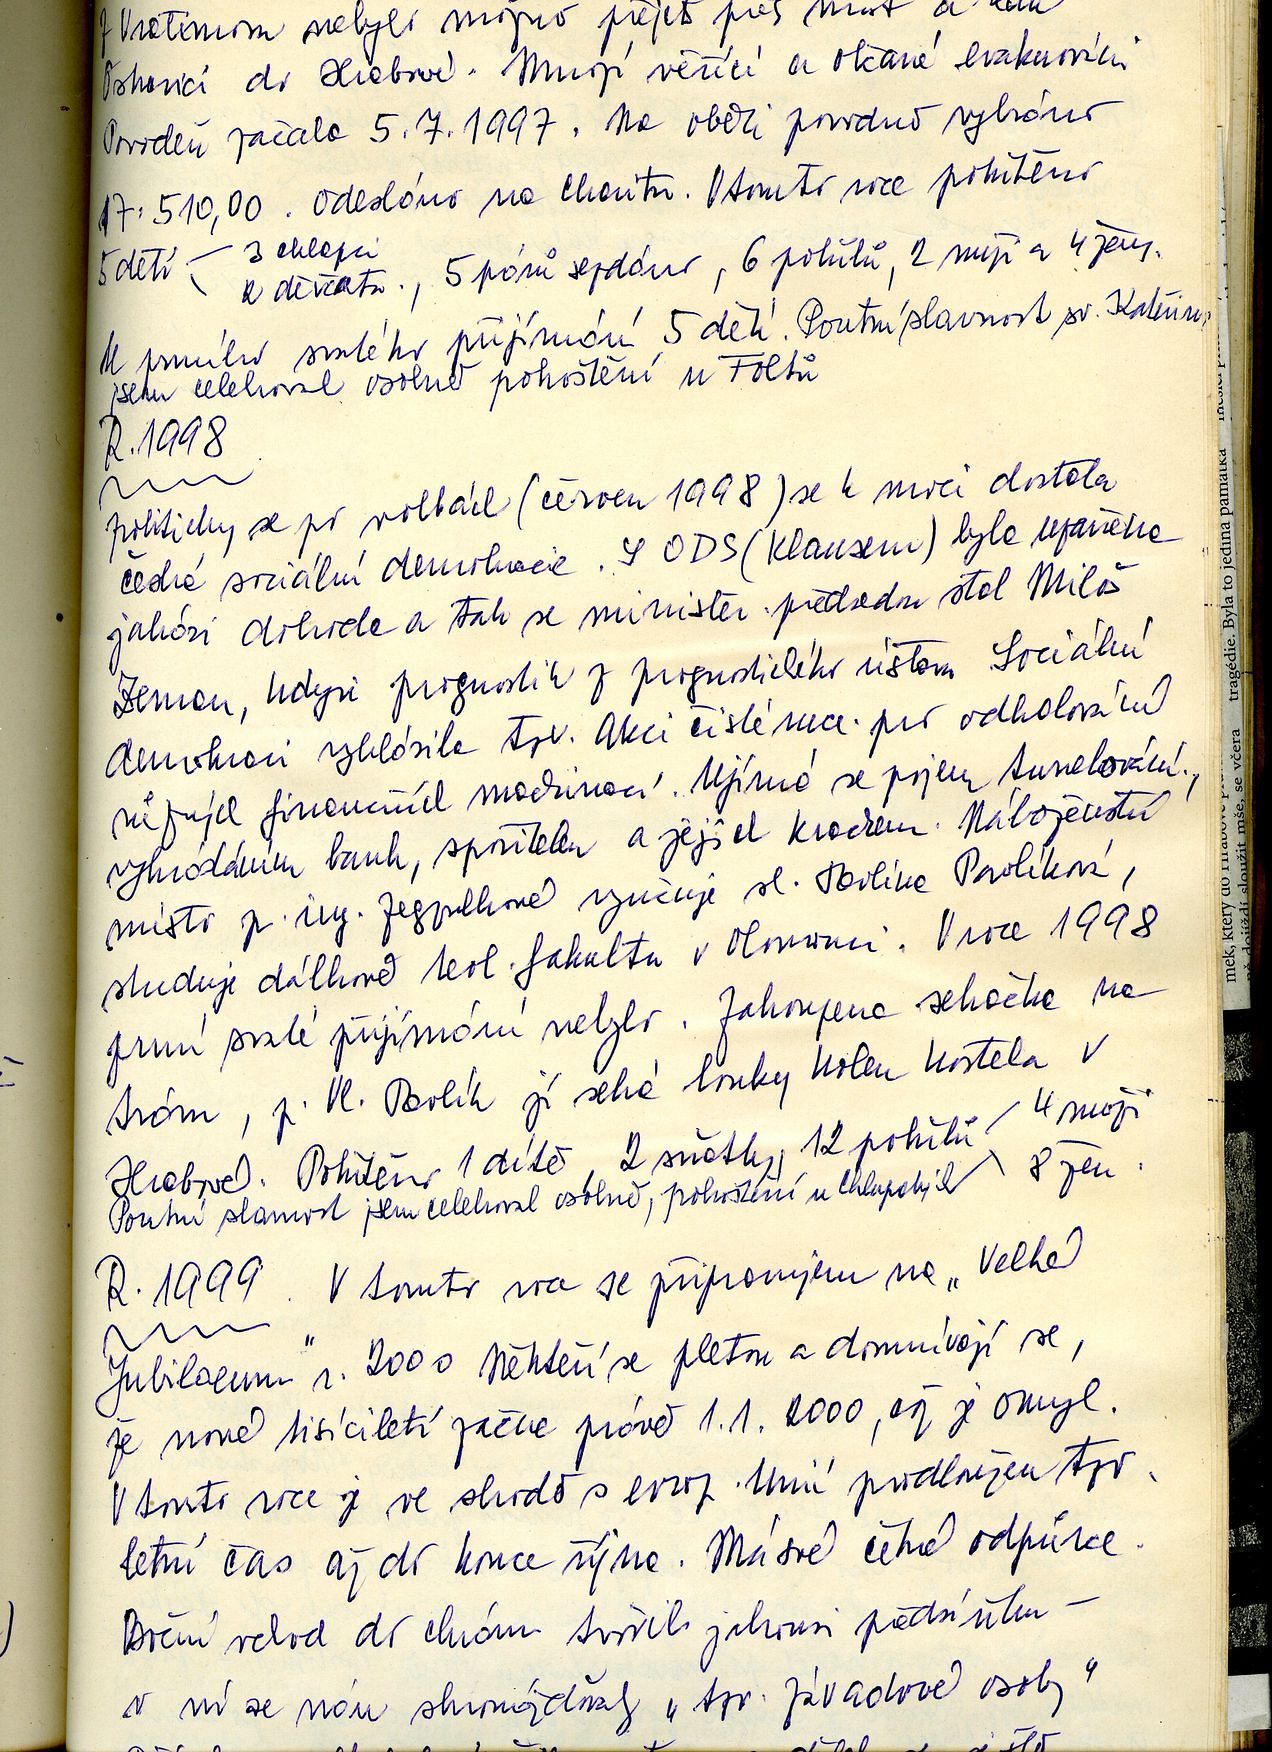 z Vratimova nebylo možno přejet přes most a řeku
Ostravici do Hrabové. Mnozí věřící a občané evakuováni
Povodeň začala 5.7.1997. Na oběti povodně vybráno
17.510,00. Odesláno na Charitu. V tomto roce pokřtěno
5 dětí 3 chlapci
2 děvčata., 5 párů sezdáno, 6 pohřbů, 2 muži a 4 ženy.
K prvnímu svatého přijímání 5 dětí. Poutní slavnost sv. Kateřiny
jsem celebroval osobně pohoštění u Foltů
R. 1998
politicky se po volbách (červen 1998) se k moci dostala
česká sociální demokracie. S ODS (Klausem) byla uzavřena
jakási dohoda a tak se minister. předsedou stal Miloš
Zeman, kdysi prognostik z prognostického ústavu Sociální
demokraci vyhlásila tzv. Akci čisté ruce. pro odhalování
různých financních machinací. Ujímá se pojem tunelování.,
vykrádáním bank, spořitelen a jejich krachem. Náboženství
místo p. ing. vyučuje sl. Pavlína Pavlíková,
studuje dálkově teol. fakultu v Olomouci. V roce 1998
první svaté přijímání nebylo. Zakoupena sekačka na
trávu, p. Vl. Pavlík jí seká louky kolem kostela v
Hrabové. Pokřtěno 1 dítě, 2 sňatky, 12 pohřbů 4 muži
8 žen.
Poutní slavnost jsem celebroval osobně, pohoštění u Chlupatých
R. 1999. V tomto roce se připravujem na „Velké
Jubilaeum" r. 2000 Někteří se pletou a domnívají se,
že nové tisíciletí začne právě 1.1. 2000, což je omyl.
V tomto roce je ve shodě s evrop. Unií prodloužen tzv.
letní čas až do konce října. Má své četné odpůrce.
Boční vchod do chrámu tvořil jakousi předsíňku –
v ní se nám shromažďovaly „tzv. závadové osoby"